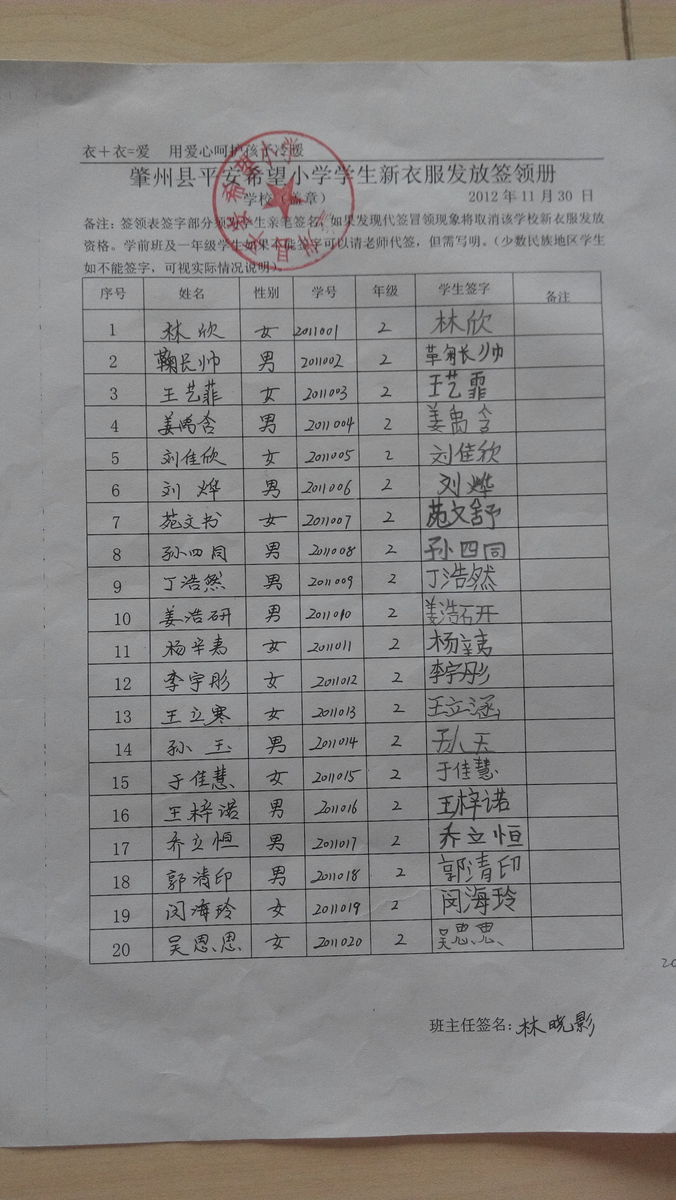 衣+衣=爱 用爱心呵护孩子冷暖
肇州县平安希望小学学生新衣服发放签领册
学校(盖章) 2012年11月30日
备注:签领表签字部分须学生亲笔签名,如果发现代签冒领现象将取消该学校新衣服发放
资格。学前班及一年级学生如果不能签字可以请老师代签,但需写明。(少数民族地区学生
如不能签字,可视实际情况说明)。
序号 姓名 性别 学号 年级 学生签字 备注
1 林欣 女 2011001 2 林欣
2 鞠长帅 男 2011002 2 鞠长帅
3 王艺菲 女 2011003 2 王艺霏
4 姜禹含 男 2011004 2 姜禹含
5 刘佳欣 女 2011005 2 刘佳欣
6 刘烨 男 2011006 2 刘烨
7 苑文书 女 2011007 2 苑文舒
8 孙四同 男 2011008 2 孙四同
9 丁浩然 男 2011009 2 丁浩然
10 姜浩研 男 2011010 2 姜浩研
11 杨辛夷 女 2011011 2 杨
12 李宇彤 女 2011012 2 李宇彤
13 王立寒 女 2011013 2 王立涵
14 孙玉 男 2011014 2 孙
15 于佳慧 女 2011015 2 于佳慧
16 王梓诺 男 2011016 2 王梓诺
17 乔立恒 男 2011017 2 乔立恒
18 郭清印 男 2011018 2 郭清印
19 闵海玲 女 2011019 2 闵海玲
20 吴思思 女 2011020 2 吴思思
班主任签名:林晓影